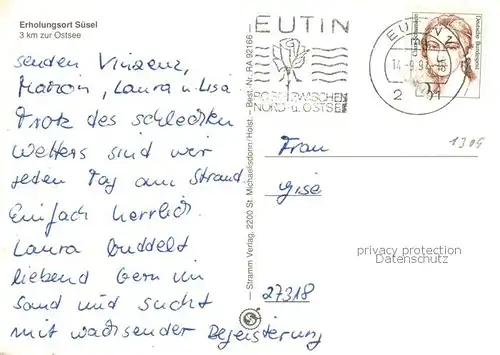 Erholungsort Süsel
3 km zur Ostsee
senden Vinzenz,
Marion, Laura u. Lisa
Trotz des schlechten
Wetters sind wir
jeden Tag am Strand.
Einfach herrlich.
Laura buddelt
liebend gern im
Sand und sucht
mit wachsender Begeisterung
Stramm Verlag, 2200 St. Michaelisdonn/Holst - Best.-Nr. BA 92166 -
EUTIN
ROSE ZWISCHEN
NORD- u. OSTSEE
EUTIN
14.-9.9
2
Deutsche Bundespost
1309
Frau
Gise
privacy protection
Datenschutz
27318